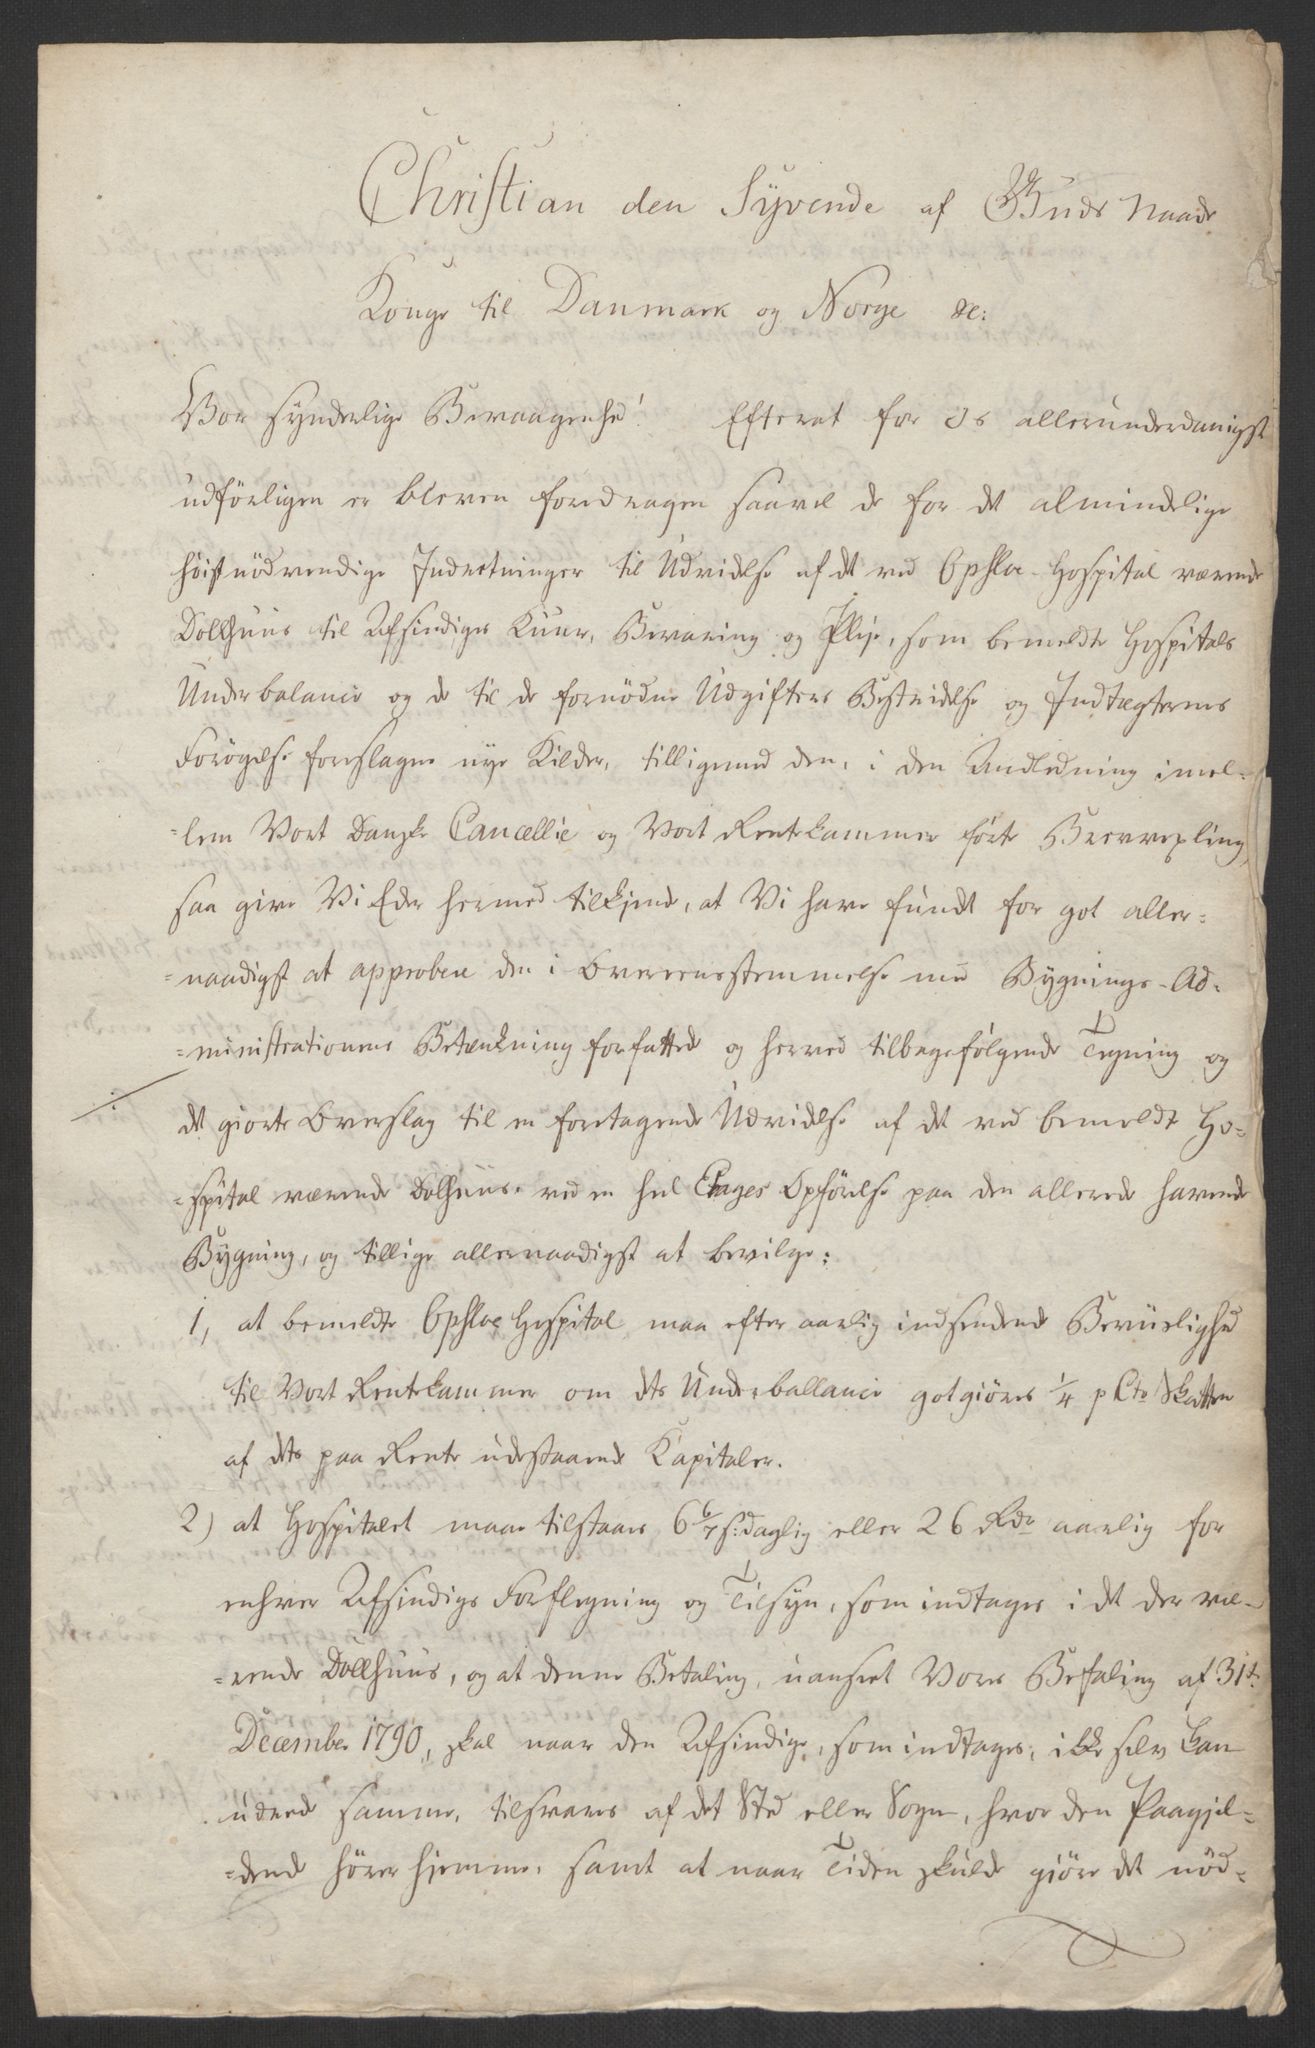 Christian den Syvende af Guds Naade
Konge til Danmark og Norge &c:
Vor synderlige Bevaagenhed! Efterat for Os allerunderdanigst
udførligen er bleven foredragen saavel de for det almindelige
høistnødvendige Indretninger til Udvidelse af det ved Opsloe Hospital værende
Dollhuus til Afsindiges Kuur, Bevaring og Pleje, som bemeldte Hospitals
Underbalance og de til de fornødne Udgifters Bestridelse og Indtægternes
Forøgelse foreslagne nye Kilder, tilligemed den, i den Anledning imel-
=lem Vort Danske Cancellie og Vort Rentekammer førte Brevvexling,
saa give Vi Eder hermed tilkjende, at Vi have fundet for got aller=
=naadigst at approbere den i Overeensstemmelse med Bygnings-Ad=
=ministrationens Betænkning forfattede og herved tilbagefølgende Tegning og
det giorte Overslag til en foretagende Udvidelse af det ved bemeldte Ho=
=spital værende Dolhuus, ved en heel Etages Opførelse paa den allerede havende
Bygning, og tillige allernaadigst at bevilge:
1, at bemeldte Opsloe Hospital maa efter aarlig indsendende Beviislighed
til Vort Rentekammer om dets Underballance gotgiøres 1/4 p Cto Skatten
af dets paa Rente udestaaende Kapitaler.
2) at Hospitalet maae tilstaaes 6 6/7 s: daglig eller 26 Rdr aarlig for
enhver Afsindigs Forflegning og Tilsyn, som indtages i det der væ-
=rende Dollhuus, og at denne Betaling, uanseet Vores Befaling af 31te
December 1790, skal naar den Afsindige, som indtages, ikke selv kan
udrede samme, tilsvares af det Sted eller Sogn, hvor den Paagjel=
=dende hører hjemme, samt at naar Tiden skulde giøre det nød=